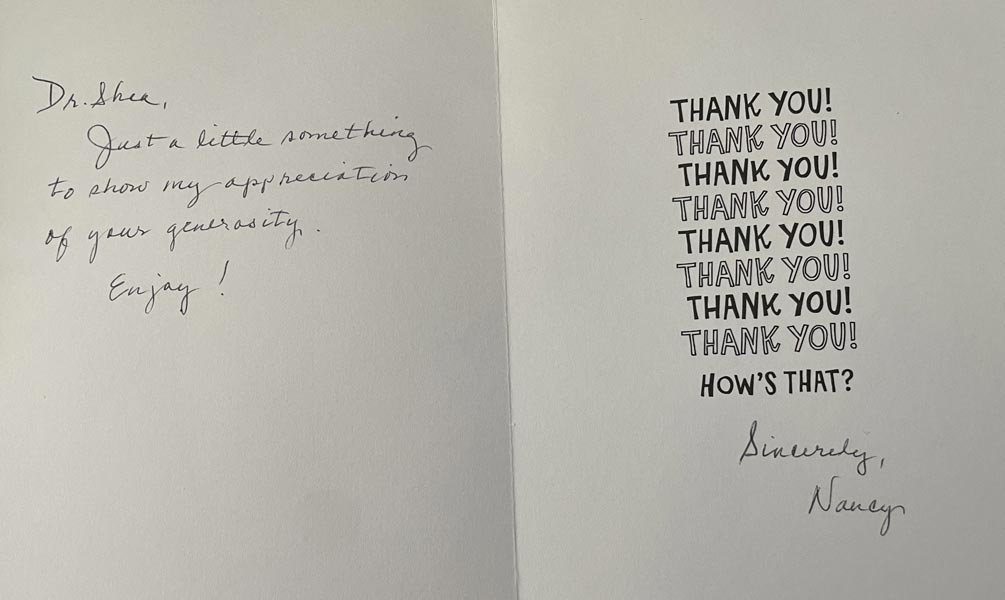 Dr. Shea,
Just a little something
to show my appreciation
of your generosity.
Enjoy!
THANK YOU!
THANK YOU!
THANK YOU!
THANK YOU!
THANK YOU!
THANK YOU!
THANK YOU!
THANK YOU!
HOW'S THAT?
Sincerely,
Nancy